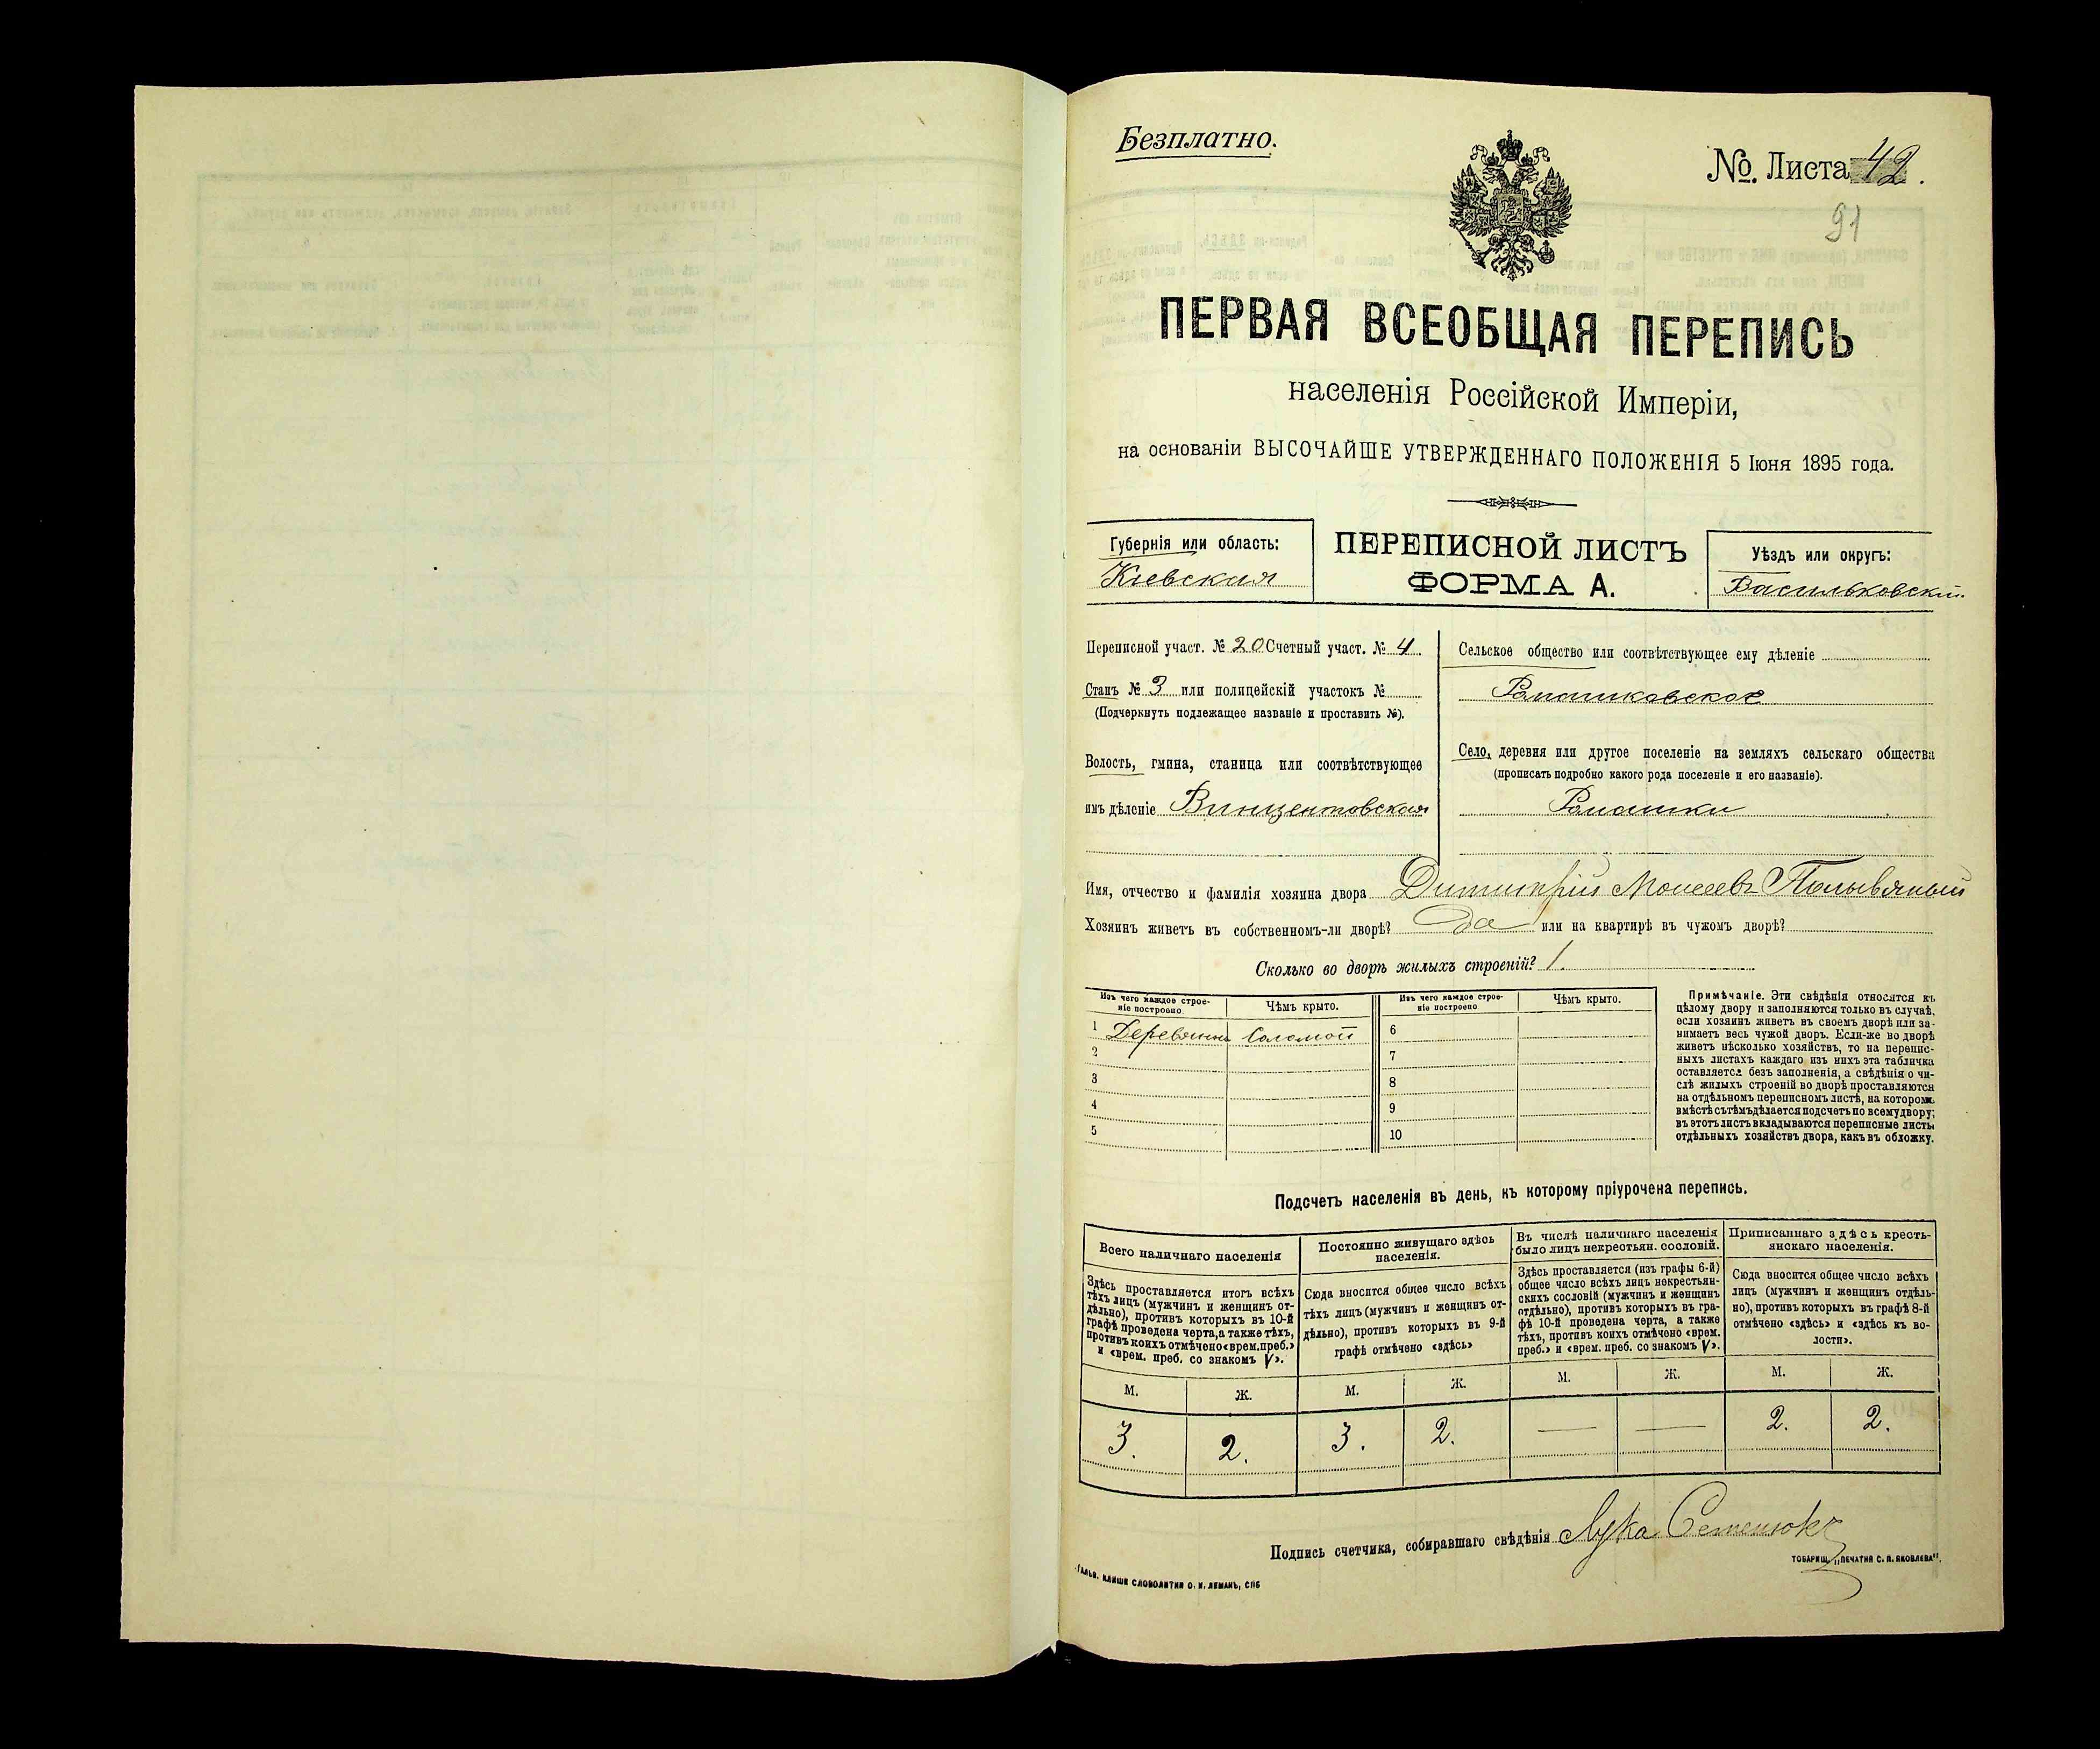 Безплатно.
№ Листа 42.
91
ПЕРВАЯ ВСЕОБЩАЯ ПЕРЕПИСЬ
населенія Россійской Имперіи,
на основаніи ВЫСОЧАЙШЕ УТВЕРЖДЕННАГО ПОЛОЖЕНІЯ 5 Іюня 1895 года.
Губернія или область:
Кіевская
ПЕРЕПИСНОЙ ЛИСТЪ
ФОРМА А.
Уѣздъ или округъ:
Васильковскій
Переписной участ. № 20 Счетный участ. № 4
Станъ № 3 или полицейскій участокъ №
(Подчеркнуть подлежащее названіе и проставить №).
Волость, гмина, станица или соотвѣтствующее
имъ дѣленіе Винцентовская
Сельское общество или соотвѣтствующее ему дѣленіе
Ромашковское
Село, деревня или другое поселеніе на земляхъ сельскаго общества
(прописать подробно какого рода поселеніе и его названіе).
Ромашки
Имя, отчество и фамилія хозяина двора Димитрій Моисеевъ Полывяный
Хозяинъ живетъ въ собственномъ-ли дворѣ? Да или на квартирѣ въ чужомъ дворѣ?
Сколько во дворѣ жилыхъ строеній? 1.
Изъ чего каждое строеніе построено. Чѣмъ крыто. Изъ чего каждое строеніе построено Чѣмъ крыто.
1 Соломой 6
2 7
3 8
4 9
5 10
Примѣчаніе. Эти свѣдѣнія относятся къ
цѣлому двору и заполняются только въ случаѣ,
если хозяинъ живетъ въ своемъ дворѣ или за-
нимаетъ весь чужой дворъ. Если-же во дворѣ
живетъ нѣсколько хозяйствъ, то на перепис-
ныхъ листахъ каждаго изъ нихъ эта табличка
оставляется безъ заполненія, а свѣдѣнія о чи-
слѣ жилыхъ строеній во дворѣ проставляются
на отдѣльномъ переписномъ листѣ, на которомъ
вмѣстѣ съ тѣмъ дѣлается подсчетъ по всему двору;
въ этотъ листъ вкладываются переписные листы
отдѣльныхъ хозяйствъ двора, какъ въ обложку.
Подсчетъ населенія въ день, къ которому пріурочена перепись.
Всего наличнаго населенія
Здѣсь проставляется итогъ всѣхъ
тѣхъ лицъ (мужчинъ и женщинъ от-
дѣльно), противъ которыхъ въ 10-й
графѣ проведена черта, а также тѣхъ,
противъ коихъ отмѣчено «врем. преб.»
и «врем. преб. со знакомъ V».
Постоянно живущаго здѣсь
населенія.
Сюда вносится общее число всѣхъ
тѣхъ лицъ (мужчинъ и женщинъ от-
дѣльно), противъ которыхъ въ 9-й
графѣ отмѣчено «здѣсь»
Въ числѣ наличнаго населенія
было лицъ некрестьян. сословій.
Здѣсь проставляется (изъ графы 6-й)
общее число всѣхъ лицъ некрестьян-
скихъ сословій (мужчинъ и женщинъ
отдѣльно), противъ которыхъ въ гра-
фѣ 10-й проведена черта, а также
тѣхъ, противъ коихъ отмѣчено «врем.
преб.» и «врем. преб. со знакомъ V».
Приписаннаго здѣсь кресть-
янскаго населенія.
Сюда вносится общее число всѣхъ
лицъ (мужчинъ и женщинъ отдѣль-
но), противъ которыхъ въ графѣ 8-й
отмѣчено «здѣсь» и «здѣсь къ во-
лости».
М. Ж. М. Ж. М. Ж. М. Ж.
3. 2. 3. 2. — — 2. 2.
Подпись счетчика, собиравшаго свѣдѣнія Лука Семенюкъ
ГАЛЬВ. КЛИШЕ СЛОВОЛИТНИ О. И. ЛЕМАНЪ, СПБ
ТОВАРИЩ. „ПЕЧАТНЯ С. П. ЯКОВЛЕВА“.